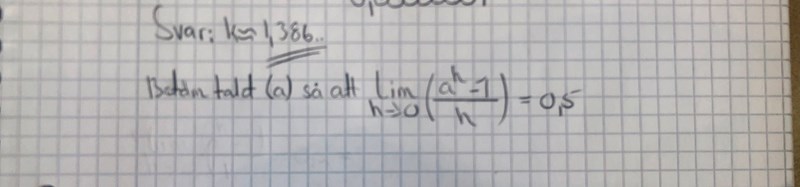 Svar: k≈ 1,386..
Bestäm talet (a) så att lim h→0 (a^h-1/h) = 0,5